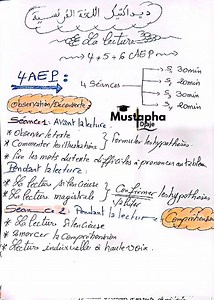 ديداكتيك اللغة الفرنسية
La lecture
4 + 5 + 6 AEP
4 AEP:
4 Séances
S1 30min
S2 20min
S3 30min
S4 20min
Observation/Découverte
Mustapha
Séance 1: Avant la lecture
* Observer le texte
* Commenter les illustrations } Formuler les hypothèses
* lire les mots du texte difficiles à prononcer au tableau
Pendant la lecture:
* La lecture silencieuse } Confirmer les hypothèses
* La lecture magistrale } Valider
Séance 2: Pendant la lecture
Compréhension
* La lecture silencieuse
* amorcer la compréhension
* lecture individuelle à haute voix.